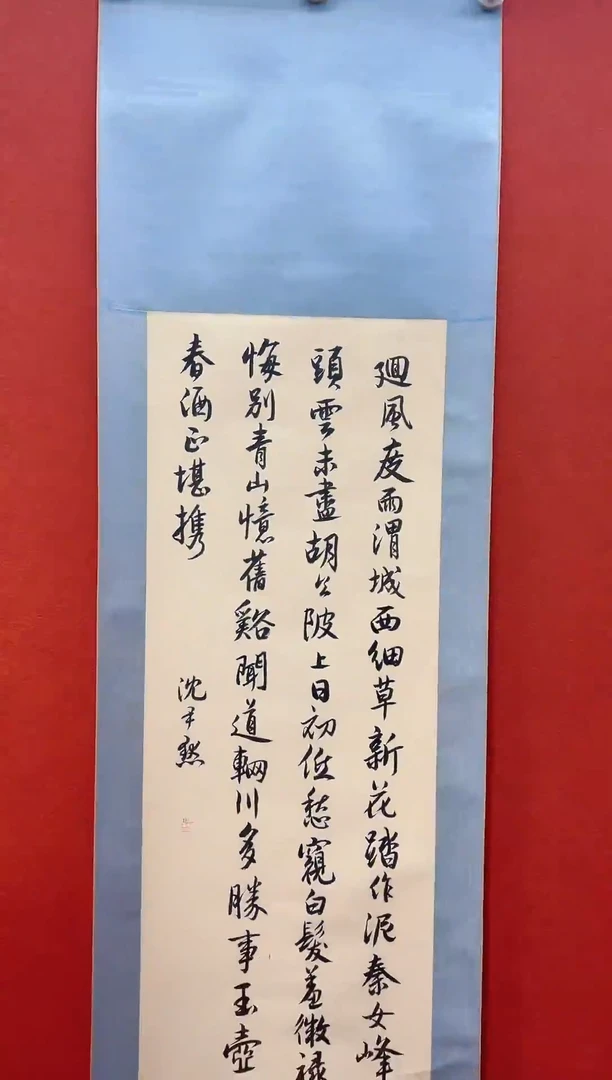 廻風度雨渭城西細草新花踏作泥秦女峰
頭雲未盡胡公陂上日初低愁窺白髮羞微禄
悔別青山憶舊谿聞道輞川多勝事玉壺
春酒正堪携
沈尹默